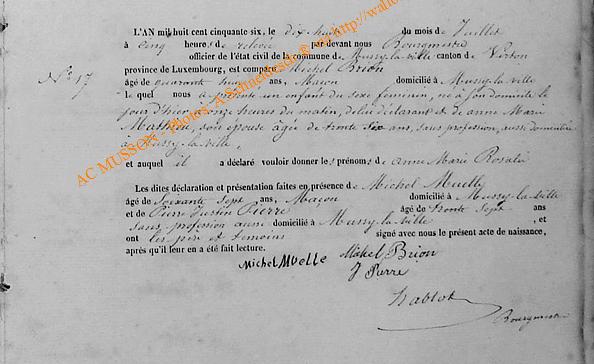 L'AN mil huit cent cinquante six, le dix huit du mois de Juillet
à cinq heures de relevée par devant nous Bourgmestre
officier de l'état civil de la commune de Mussy-la-ville canton de Virton
N° 17
province de Luxembourg, est comparu Michel Brion
âgé de quarante ans, Maçon domicilié à Mussy-la-ville
le quel nous a présenté un enfant du sexe feminin, né à son domicile le
jour d'hier à onze heures du matin, de lui déclarant et de anne Marie
Mathieu, son épouse agée de trente six ans, sans profession, aussi domiciliée
à Mussy-la-ville,
et auquel il a déclaré vouloir donner les prénoms de anne Marie Rosalie
Les dites déclaration et présentation faites en présence de Michel Muelle
âgé de Soixante Sept ans, Maçon domicilié à Mussy-la-ville
et de Pierre Justin Pierre âgé de trente Sept ans
sans profession aussi domicilié à Mussy-la-ville, et
ont les père et témoins signé avec nous le présent acte de naissance,
après qu'il leur en a été fait lecture.
Michel MUelle Mihel Brion
J Pierre
Hablot
Bourgmestre
AC MUSSON - Photos: A. Schaedgen